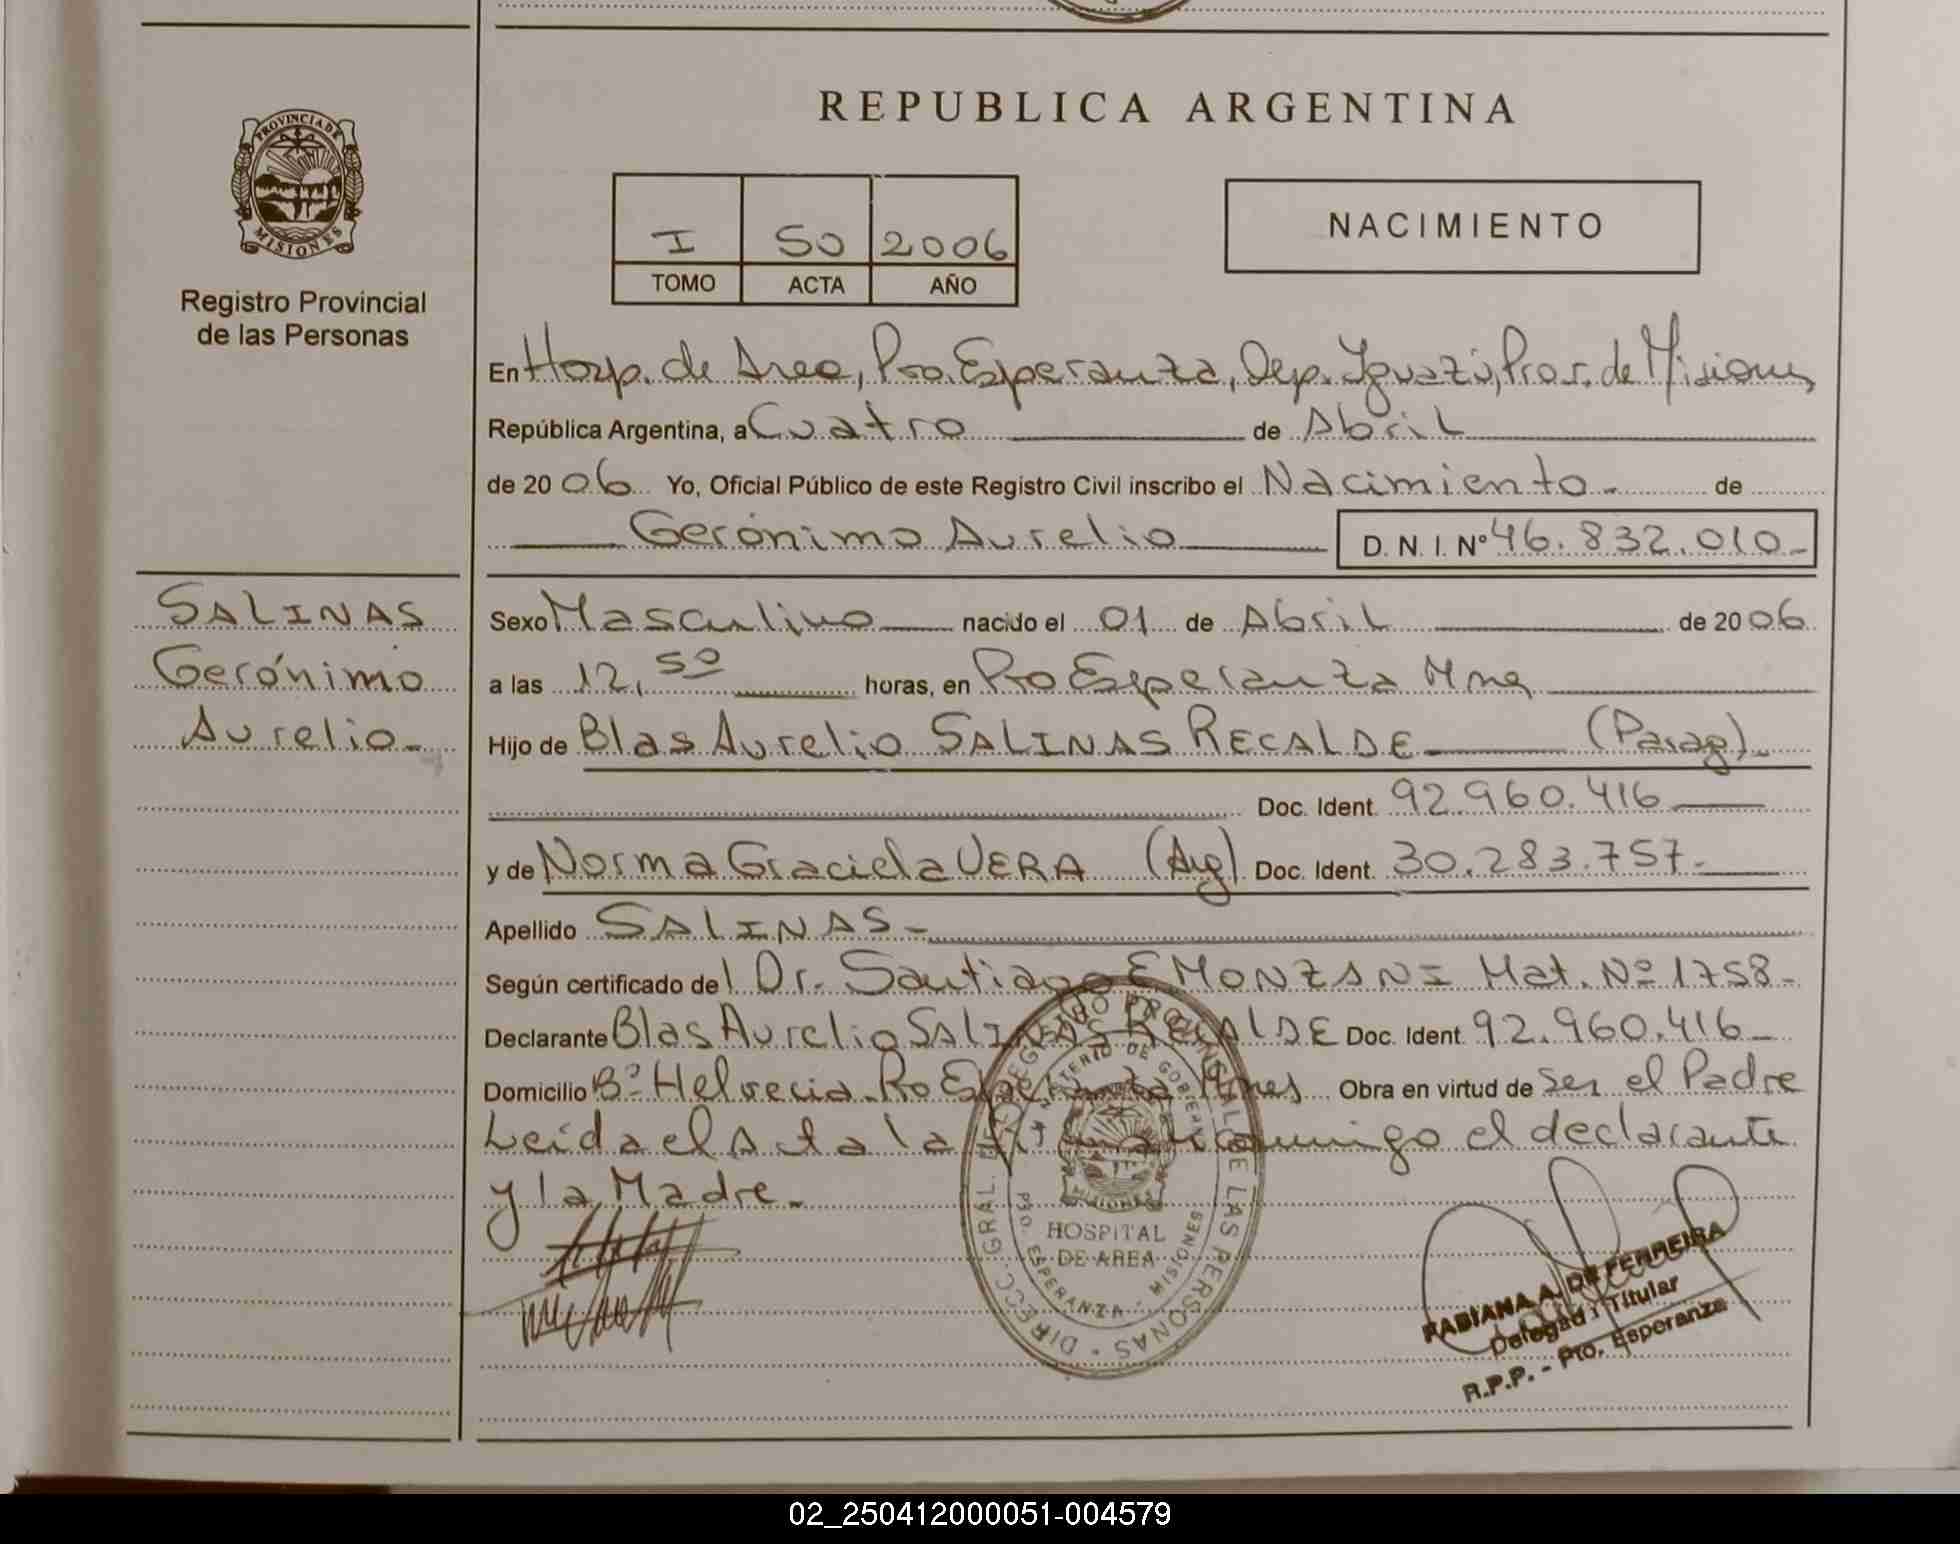 REPUBLICA ARGENTINA
PROVINCIA DE
MISIONES
Registro Provincial
de las Personas
I 50 2006
TOMO ACTA AÑO
NACIMIENTO
En Hosp. de Area, Pto. Esperanza, Dep. Iguazú, Prov. de Misiones
República Argentina, a Cuatro de Abril
de 2006 Yo, Oficial Público de este Registro Civil inscribo el Nacimiento - de
Gerónimo Aurelio D. N. I. Nº 46.832.010-
SALINAS
Gerónimo
Aurelio-
Sexo Masculino nacido el 01 de Abril de 2006
a las 12,50 horas, en Pto Esperanza Mnes
Hijo de Blas Aurelio SALINAS RECALDE (Parag).
Doc. Ident. 92.960.416
y de Norma Graciela VERA (Arg) Doc. Ident. 30.283.757.
Apellido SALINAS-
Según certificado del Dr. Santiago E MONZANI Mat. Nº 1758-
Declarante Blas Aurelio SALINAS RECALDE Doc. Ident. 92.960.416
Domicilio Bº Helvecia. Pto Esperanza Mnes Obra en virtud de ser el Padre
Leida el Acta la firman conmigo el declarante
y la Madre.
DIRECC. GRAL. DEL REGISTRO PROVINCIAL DE LAS PERSONAS
MINISTERIO DE GOBIERNO
MISIONES
HOSPITAL
DE AREA
PTO. ESPERANZA - MISIONES
FABIANA A. DE FERREIRA
Delegada Titular
R.P.P. - Pto. Esperanza
02_250412000051-004579